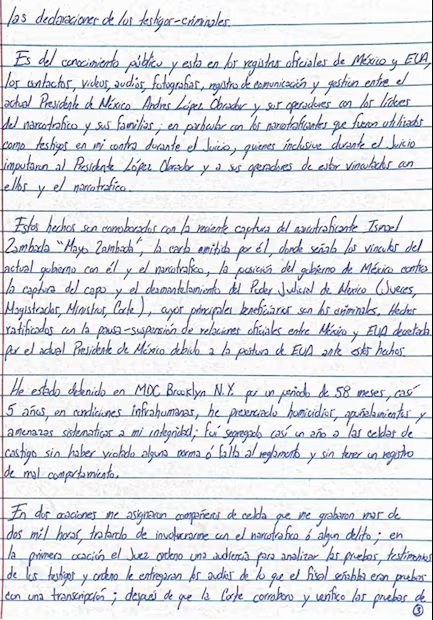 las declaraciones de los testigos-criminales.
Es del conocimiento público y esta en los registros oficiales de México y EUA,
los contactos, videos, audios, fotografias, registro de comunicación y gestion entre el
actual Presidente de México Andres López Obrador y sus operadores con los lideres
del narcotrafico y sus familias, en particular con los narcotraficantes que fueron utilizados
como testigos en mi contra durante el Juicio, quienes inclusive durante el Juicio
imputaron al Presidente López Obrador y a sus operadores de estar vinculados con
ellos y el narcotrafico.
Estos hechos son corroborados con la reciente captura del narcotraficante Ismael
Zambada "Mayo Zambada", la carta emitida por él, donde señala los vinculos del
actual gobierno con él y el narcotrafico, la posición del gobierno de México contra
la captura del capo y el desmantelamiento del Poder Judicial de México (Jueces,
Magistrados, Ministros, Corte), cuyos principales beneficiarios son los criminales. Hechos
ratificados con la pausa-suspensión de relaciones oficiales entre México y EUA decretada
por el actual Presidente de México debido a la postura de EUA ante estos hechos.
He estado detenido en MDC Brooklyn N.Y. por un periodo de 58 meses, casí
5 años, en condiciones infrahumanas, he presenciado homicidios, apuñalamientos y
amenazas sistematicas a mi integridad; fuí segregado casí un año a las celdas de
castigo sin haber violado alguna norma ó falta al reglamento y sin tener un registro
de mal comportamiento.
En dos ocaciones me asignaron compañeros de celda que me grabaron mas de
dos mil horas, tratando de involucrarme con el narcotrafico ó algun delito; en
la primera ocación el Juez ordeno una audiencia para analizar las pruebas, testimonios
de los testigos y ordeno le entregaran los audios de lo que el fiscal señalaba eran pruebas
con una transcripción; después de que la Corte corroboro y verifico las pruebas de
3